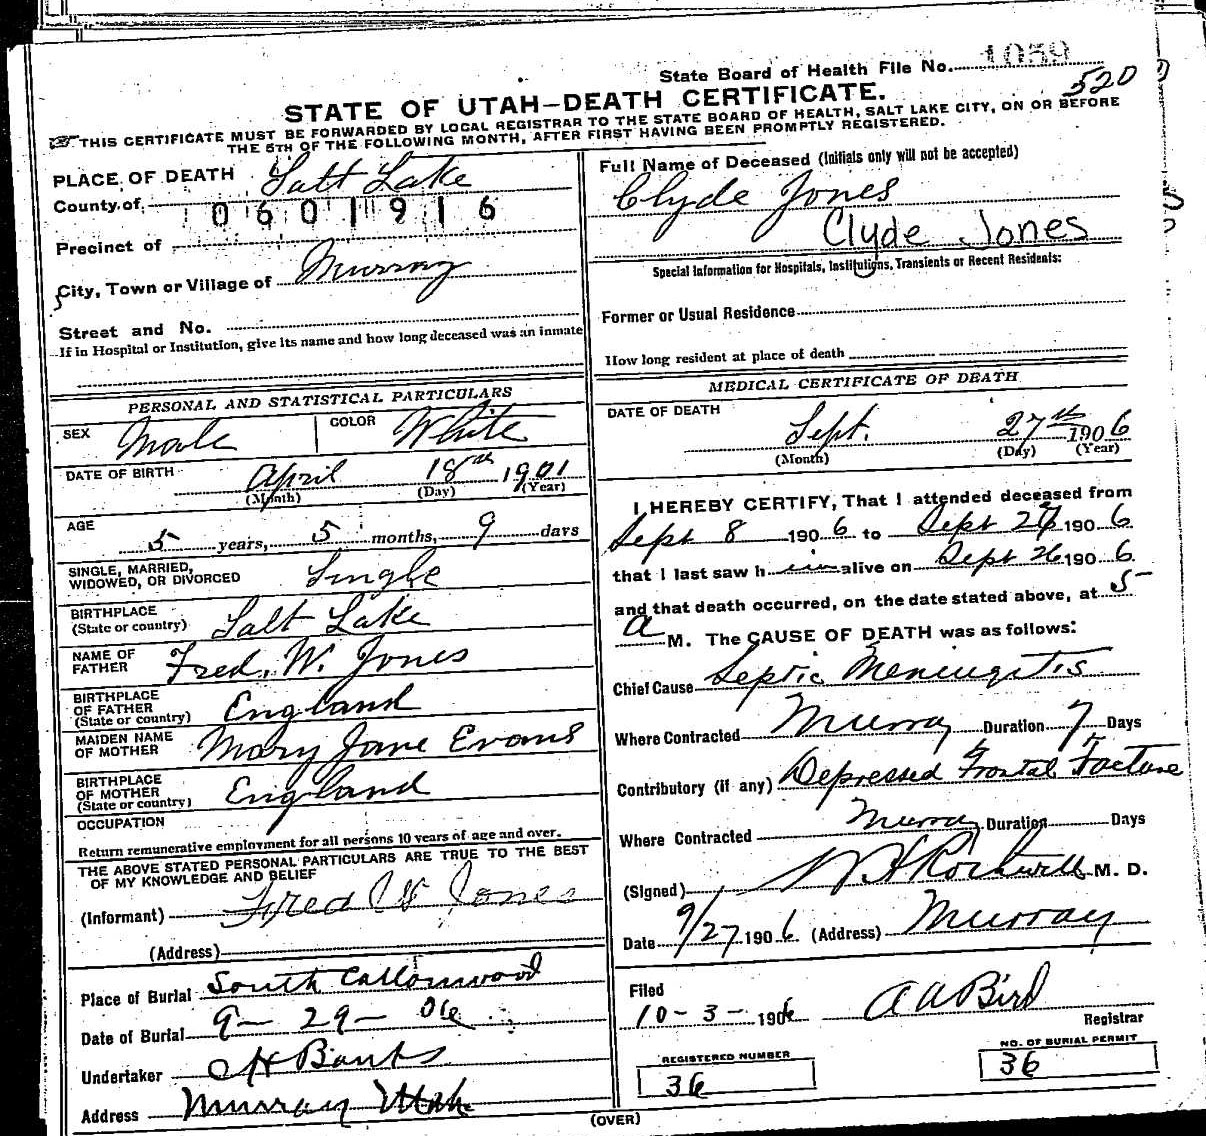 State Board of Health File No. 1059
520
STATE OF UTAH—DEATH CERTIFICATE.
THIS CERTIFICATE MUST BE FORWARDED BY LOCAL REGISTRAR TO THE STATE BOARD OF HEALTH, SALT LAKE CITY, ON OR BEFORE
THE 5TH OF THE FOLLOWING MONTH, AFTER FIRST HAVING BEEN PROMPTLY REGISTERED.
PLACE OF DEATH
County of Salt Lake
0601916
Precinct of
City, Town or Village of Murray
Street and No.
If in Hospital or Institution, give its name and how long deceased was an inmate
Full Name of Deceased (Initials only will not be accepted)
Clyde Jones
Clyde Jones
Special Information for Hospitals, Institutions, Transients or Recent Residents:
Former or Usual Residence
How long resident at place of death
PERSONAL AND STATISTICAL PARTICULARS
SEX Male COLOR White
DATE OF BIRTH April 18th 1901
(Month) (Day) (Year)
AGE
5 years, 5 months, 9 days
SINGLE, MARRIED,
WIDOWED, OR DIVORCED Single
BIRTHPLACE
(State or country) Salt Lake
NAME OF
FATHER Fred. W. Jones
BIRTHPLACE
OF FATHER
(State or country) England
MAIDEN NAME
OF MOTHER Mary Jane Evans
BIRTHPLACE
OF MOTHER
(State or country) England
OCCUPATION
Return remunerative employment for all persons 10 years of age and over.
THE ABOVE STATED PERSONAL PARTICULARS ARE TRUE TO THE BEST
OF MY KNOWLEDGE AND BELIEF
(Informant) Fred W Jones
(Address)
Place of Burial South Cottonwood
Date of Burial 9-29-06
Undertaker Banks
Address Murray Utah
MEDICAL CERTIFICATE OF DEATH
DATE OF DEATH
Sept. 27th 1906
(Month) (Day) (Year)
I HEREBY CERTIFY, That I attended deceased from
Sept 8 1906 to Sept 1906
that I last saw him alive on Sept 26 1906
and that death occurred, on the date stated above, at 5
a M. The CAUSE OF DEATH was as follows:
Chief Cause Septic Meningitis
Where Contracted Murray Duration 7 Days
Contributory (if any) Depressed Frontal Facture
Where Contracted Murray Duration Days
(Signed) Rockwell M. D.
Date 9/27 1906 (Address) Murray
Filed
10-3-1906 A A Bird
Registrar
REGISTERED NUMBER
36
NO. OF BURIAL PERMIT
36
(OVER)